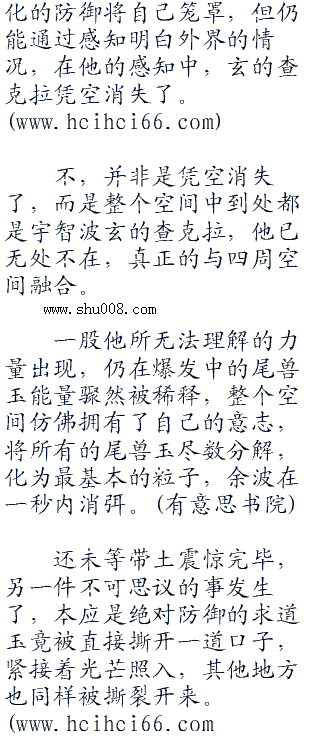 化的防御将自己笼罩，但仍
能通过感知明白外界的情
况，在他的感知中，玄的查
克拉凭空消失了。
(www.hcihci66.com)
不，并非是凭空消失
了，而是整个空间中到处都
是宇智波玄的查克拉，他已
无处不在，真正的与四周空
间融合。
www.shu008.com
一股他所无法理解的力
量出现，仍在爆发中的尾兽
玉能量骤然被稀释，整个空
间仿佛拥有了自己的意志，
将所有的尾兽玉尽数分解，
化为最基本的粒子，余波在
一秒内消弭。(有意思书院)
还未等带土震惊完毕，
另一件不可思议的事发生
了，本应是绝对防御的求道
玉竟被直接撕开一道口子，
紧接着光芒照入，其他地方
也同样被撕裂开来。
(www.hcihci66.com